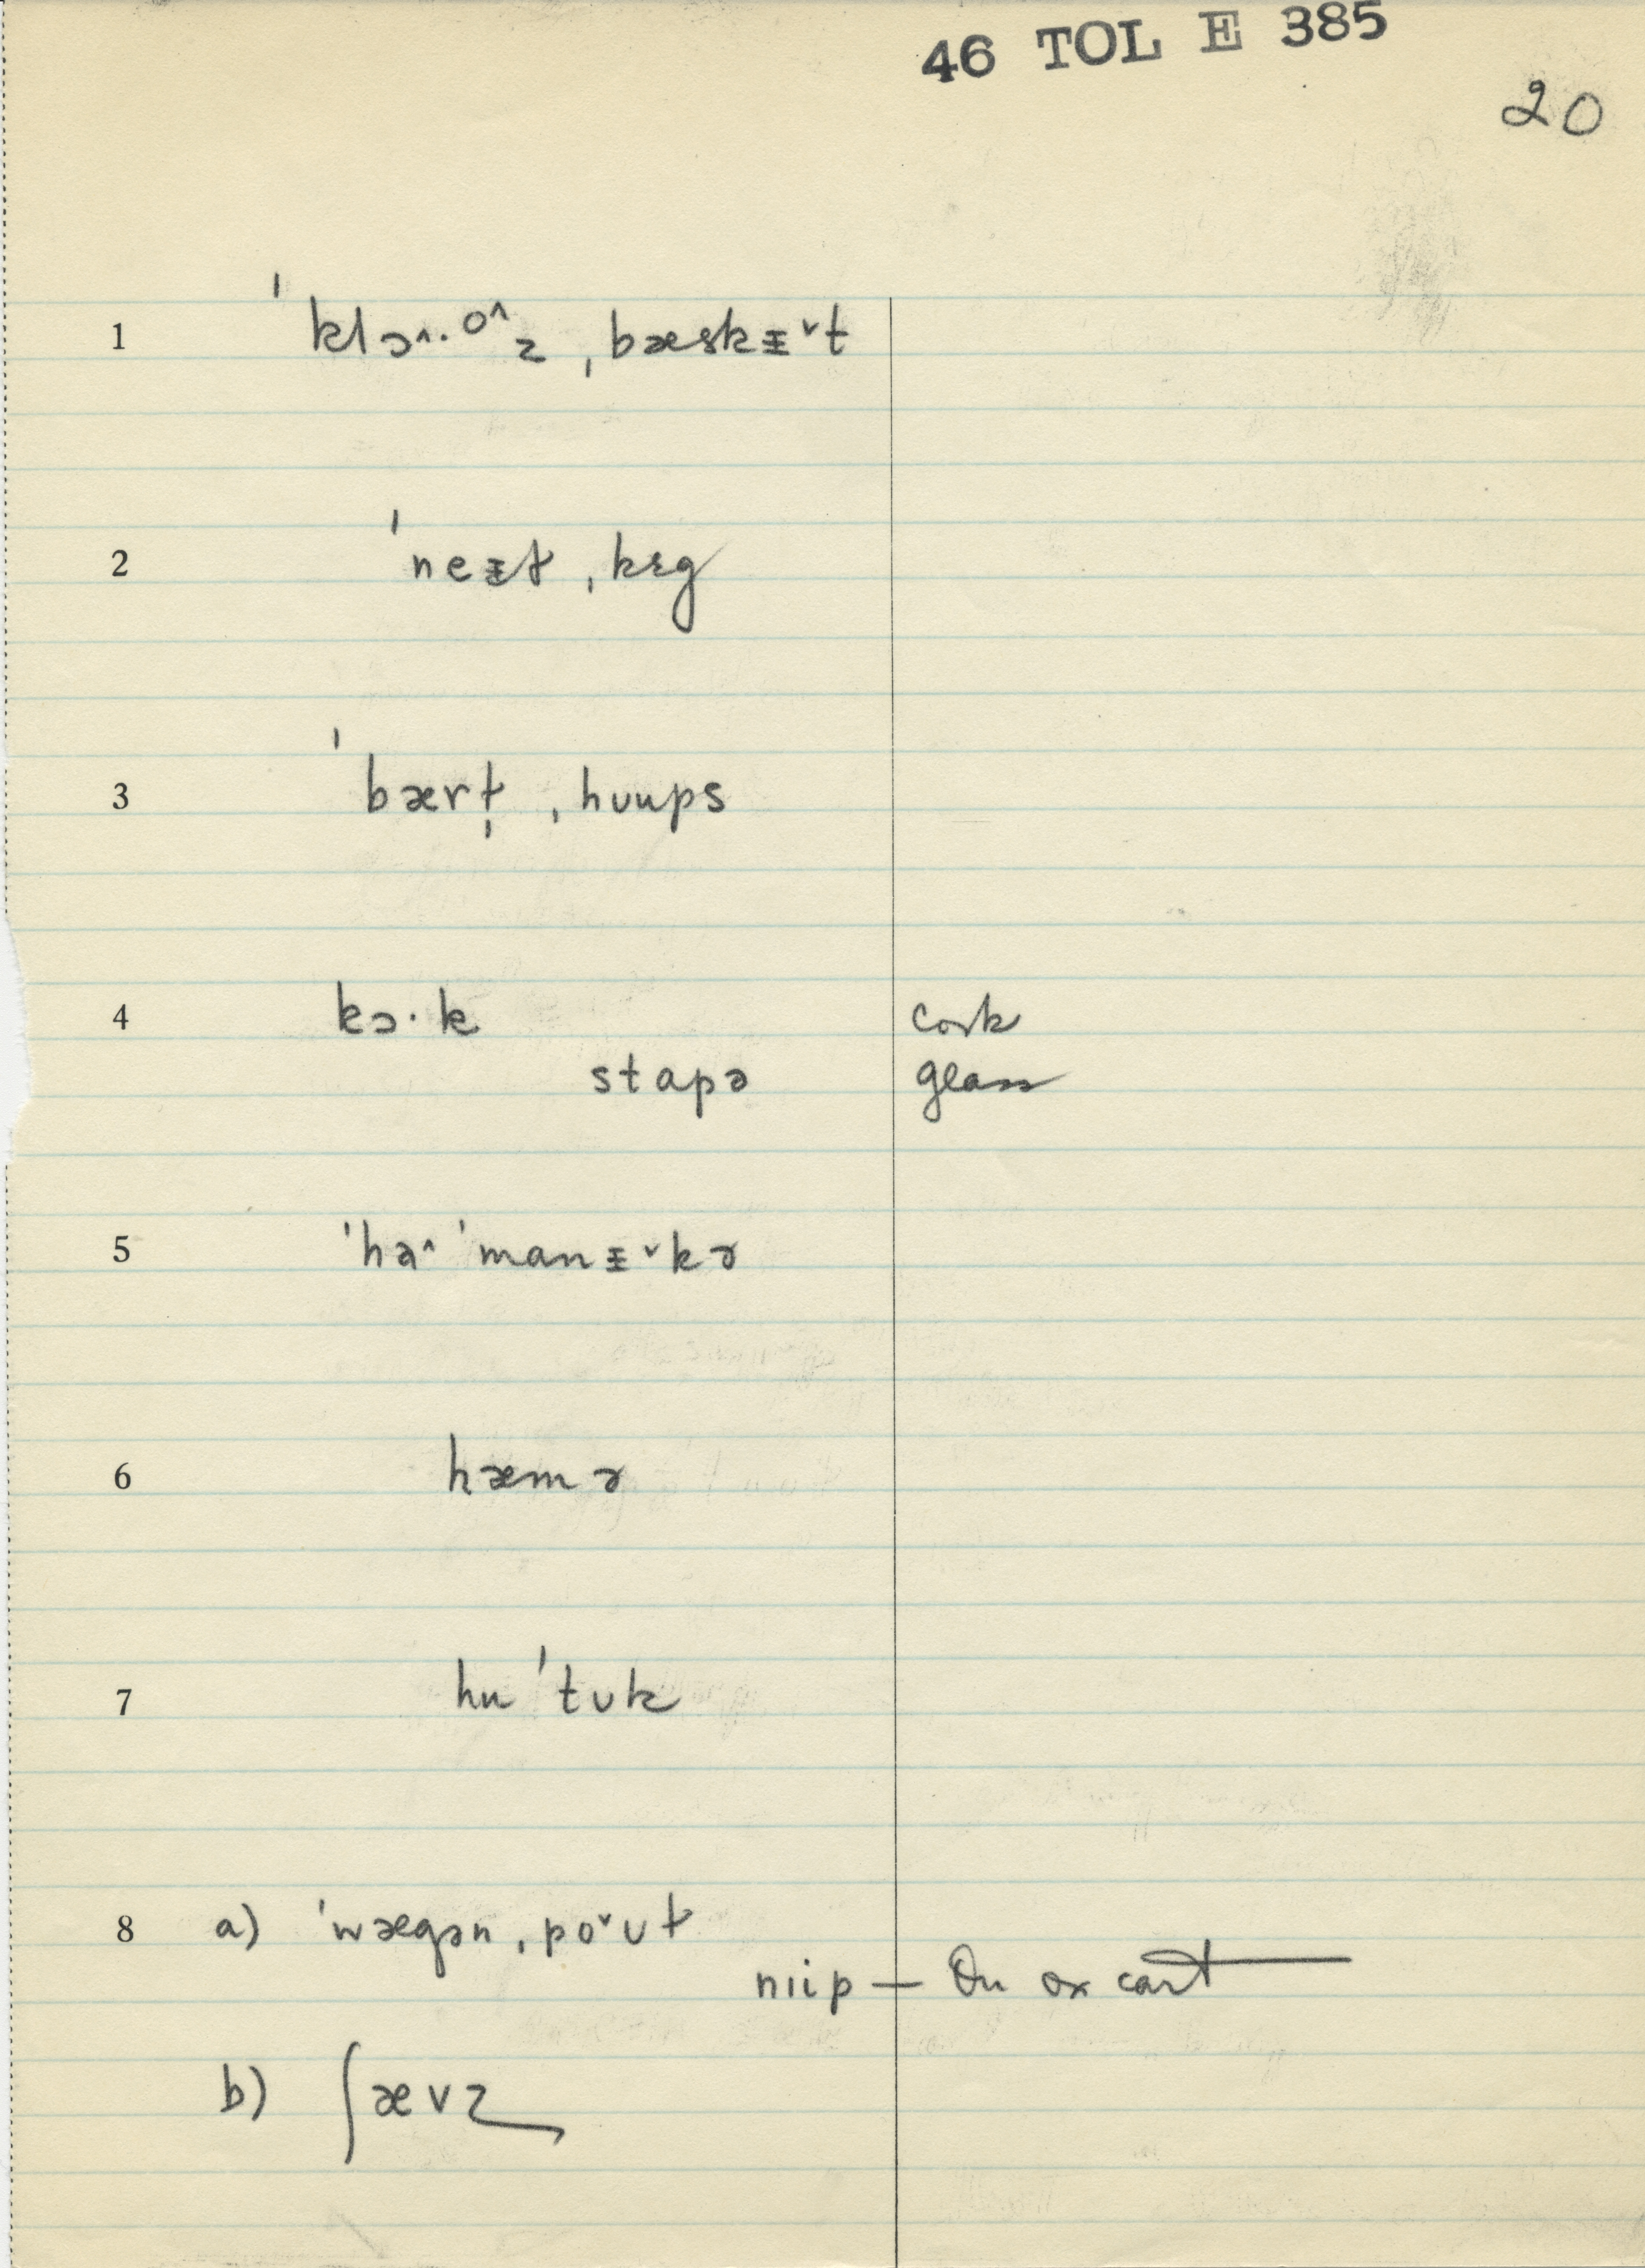 46 TOL E 385
20
1 ˈklɔ^·o^z ˌbæskᵻˇt
2 ˈneᵻt ˌkɛg
3 ˈbærḷ ˌhuups
4 kɔ·k cork
stapə glass
5 ˈhɑ^ ˈmanᵻˇkə
6 hæmə
7 huˈtʊk
8 a) ˈwægən ˌpoˇʊt
nɪip — On ox cart
b) ʃævz